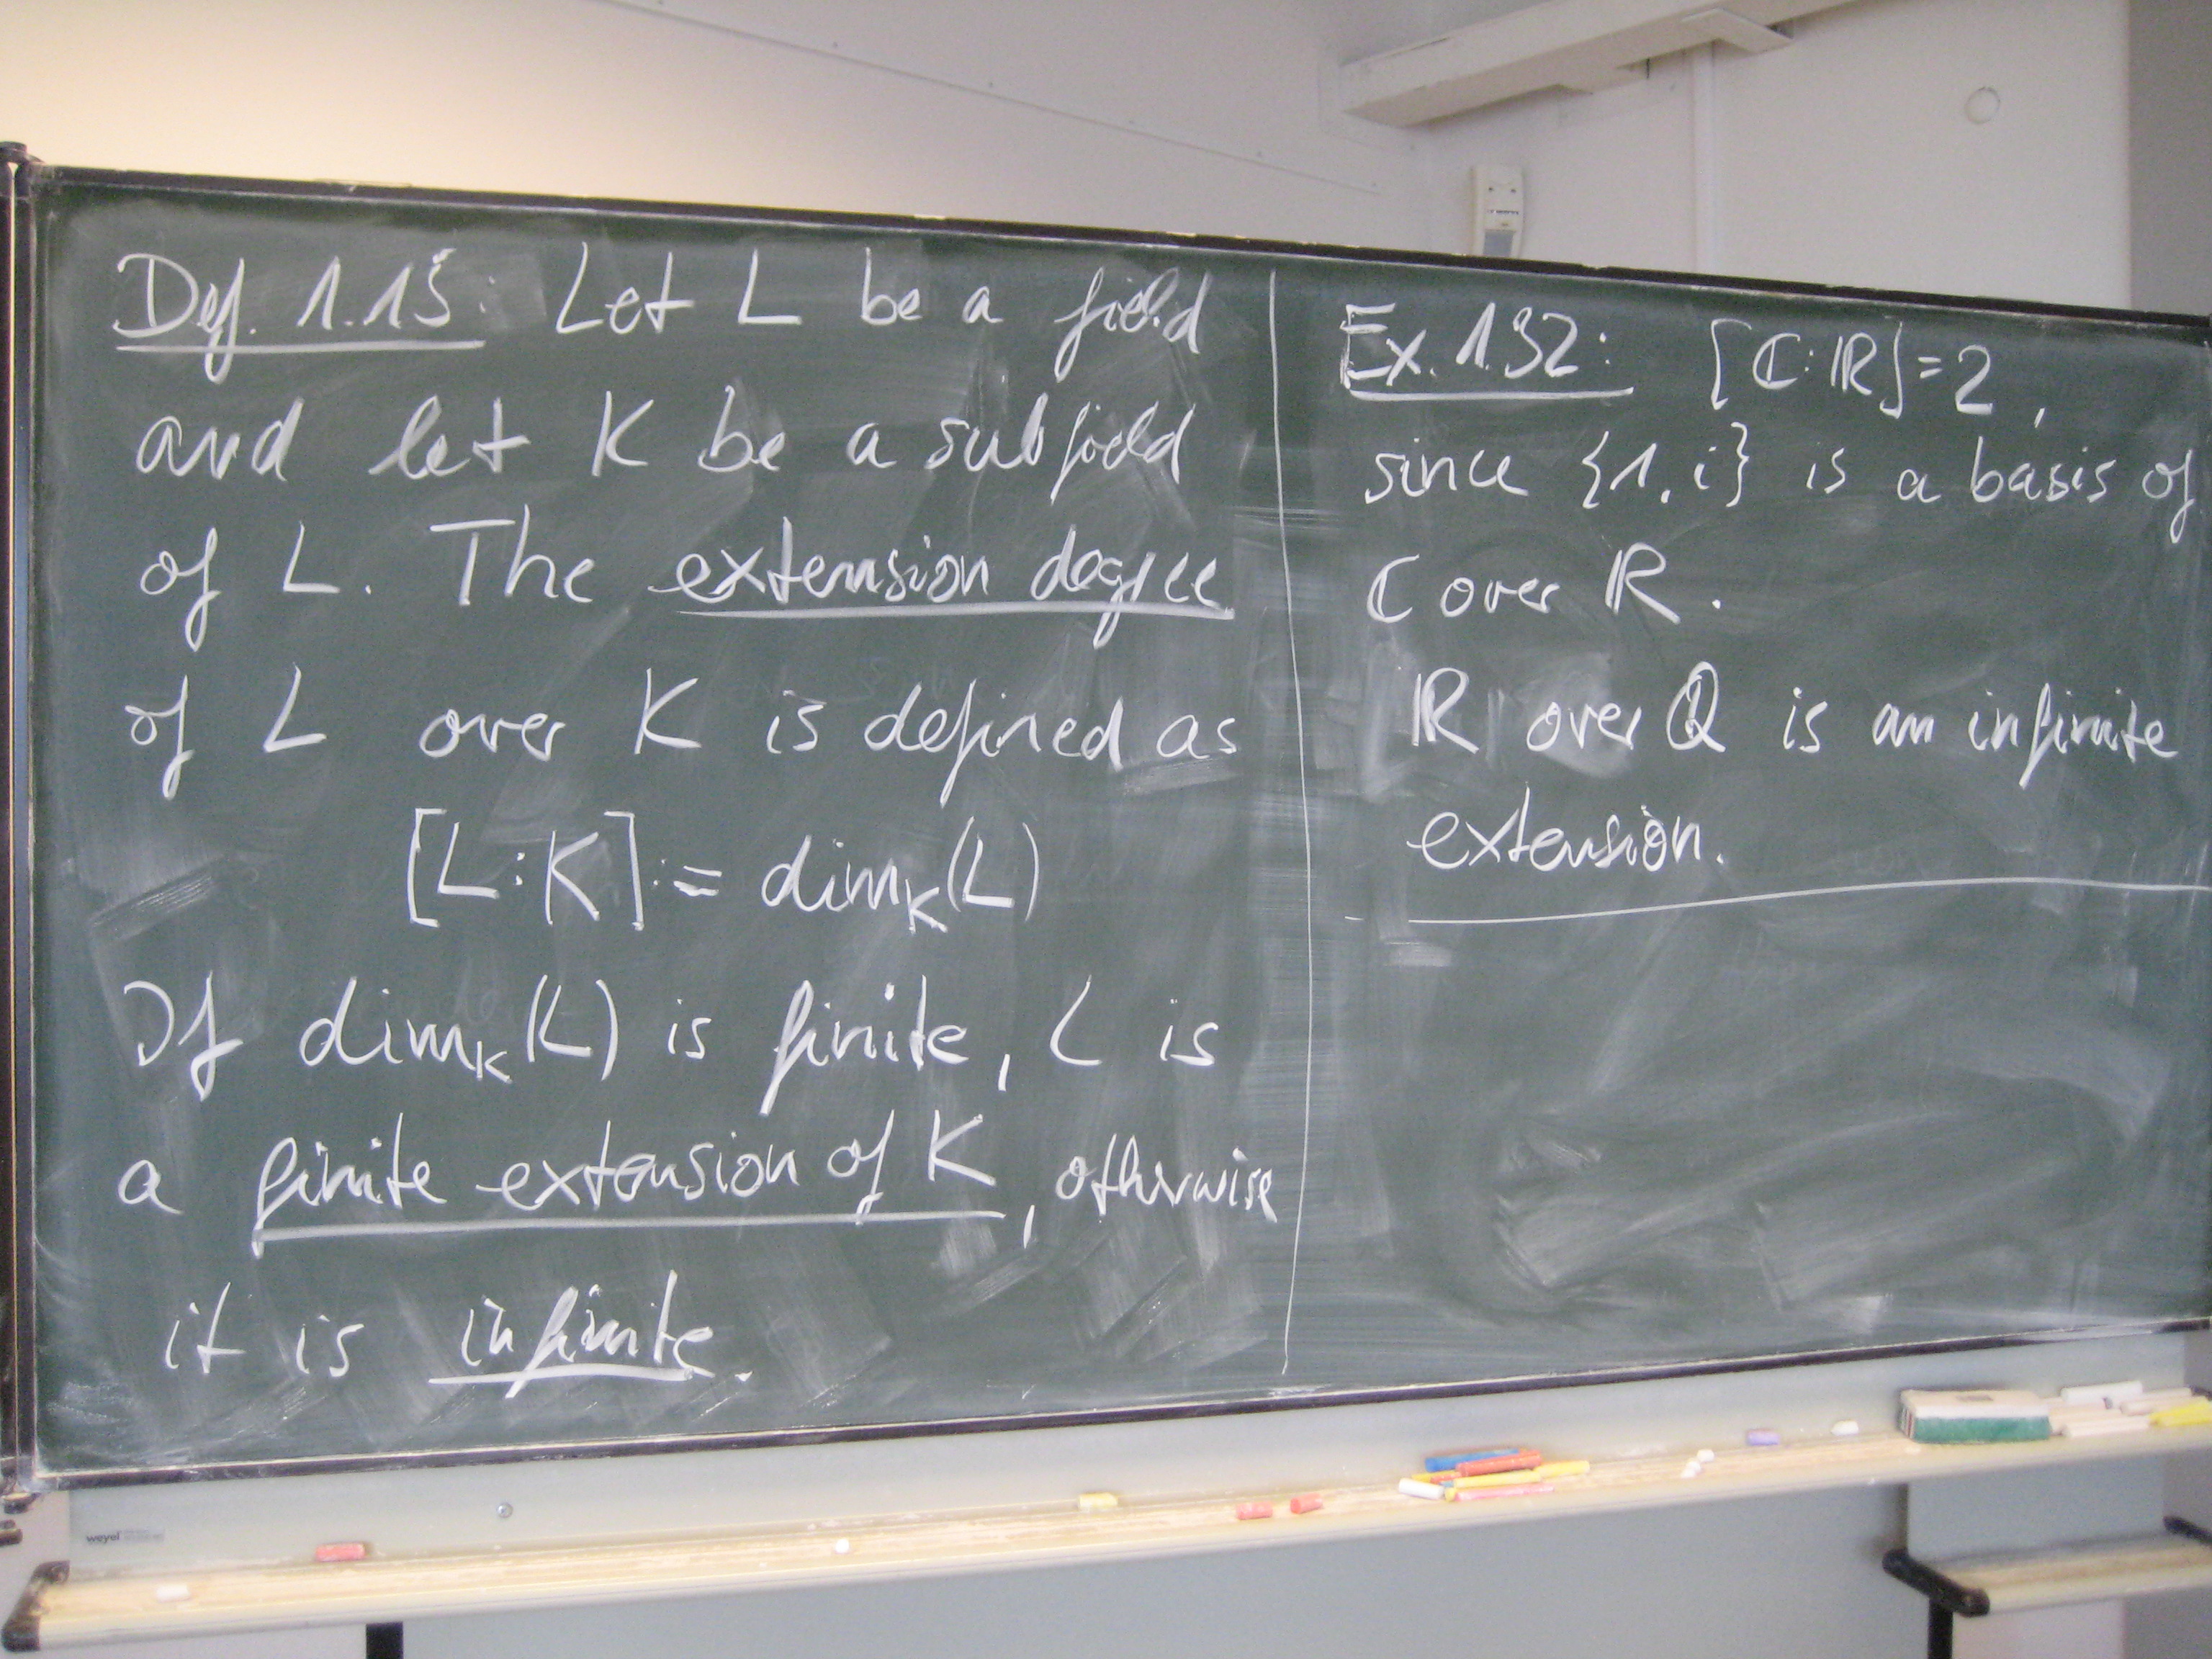 Def. 1.15: Let L be a field
and let K be a subfield
of L. The extension degree
of L over K is defined as
[L:K] := dim_K(L)
If dim_K(L) is finite, L is
a finite extension of K, otherwise
it is infinite.
Ex. 1.32: [ℂ:ℝ]=2,
since {1, i} is a basis of
ℂ over ℝ.
ℝ over ℚ is an infinite
extension.
weyel